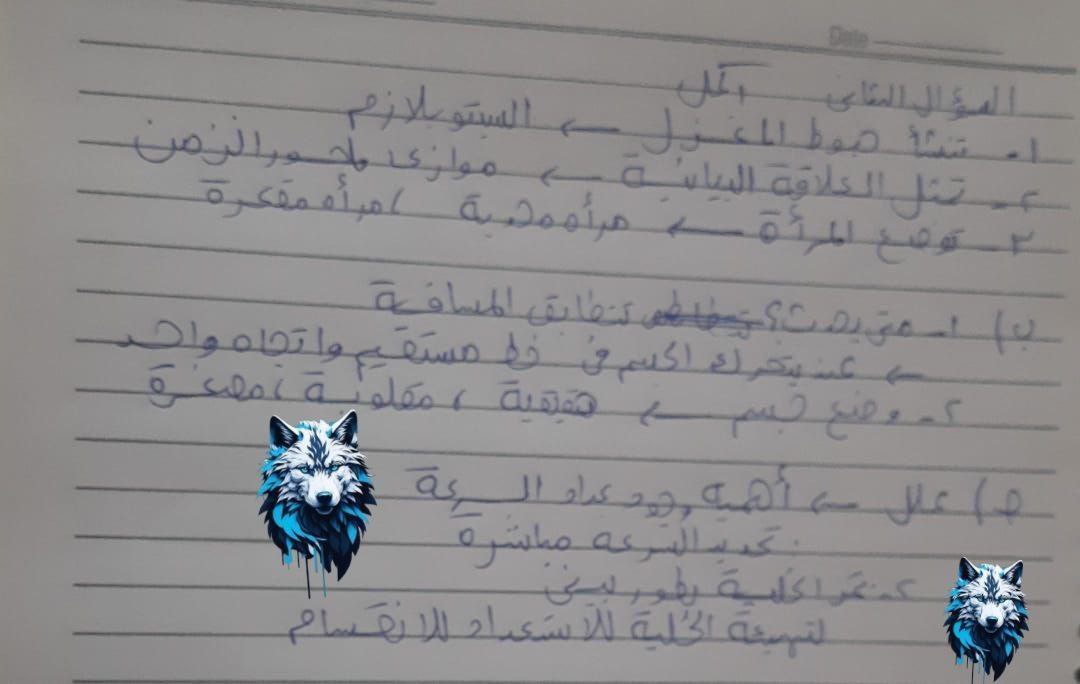 Date
السؤال الثانى أكمل
١- تنشأ خيوط المغزل ← السيتوبلازم
٢- تمثل العلاقة البيانية ← موازى لمحور الزمن
٣- توضع المرأة ← مرأه محدبة ، مرأه مقعرة
ب) ١- متى يحدث؟ تتطابق المسافة
← عند يتحرك الجسم فى خط مستقيم واتجاه واحد
٢- وضع جسم ← حقيقية ، مقلوبة ، مصغرة
ج) علل ← أهمية وجود عداد السرعة
تحديد السرعه مباشرة
٢- تمر الخلية بطور بينى
لتهيئة الخلية للاستعداد للانقسام